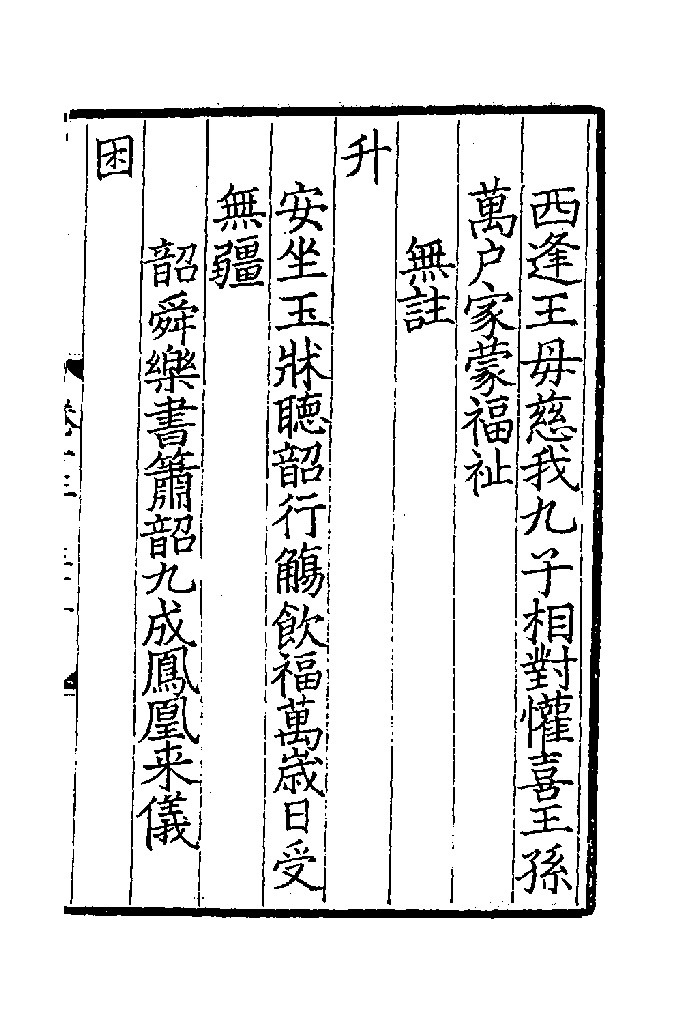 西逢王毋慈我九子相對懽喜王孫
萬户家蒙福祉
無註
升
安坐玉牀聽韶行觴飲福萬歳日受
無疆
韶舜樂書簫韶九成鳳凰来儀
困